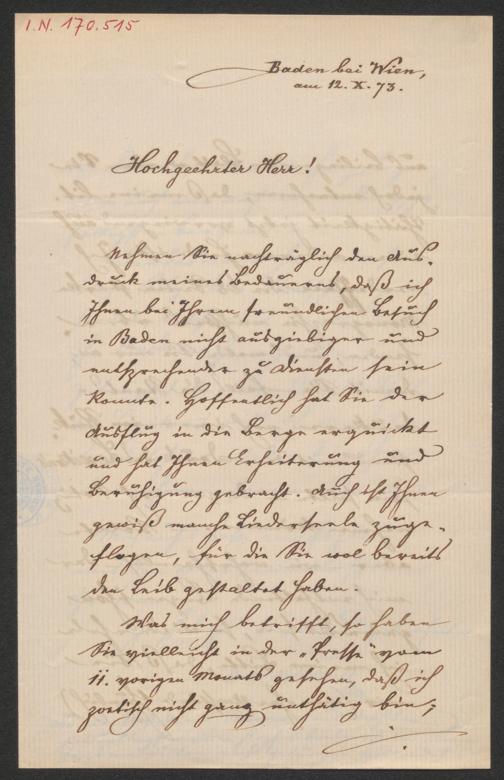 I.N. 170.515
Baden bei Wien,
am 12. X. 73.
Hochgeehrter Herr!
Nehmen Sie nachträglich den Aus-
druck meines Bedauerns, daß ich
Ihnen bei Ihrem freundlichen Besuch
in Baden nicht ausgiebiger und
entsprechender zu Diensten sein
konnte. Hoffentlich hat Sie der
Ausflug in die Berge erquickt
und hat Ihnen Erheiterung und
Beruhigung gebracht. Auch ist Ihnen
gewiß manche Liederseele zuge-
flogen, für die Sie wol bereits
den Leib gestaltet haben.
Was mich betrifft, so haben
Sie vielleicht in der „Presse" vom
11. vorigen Monats gesehen, daß ich
poetisch nicht ganz unthätig bin;